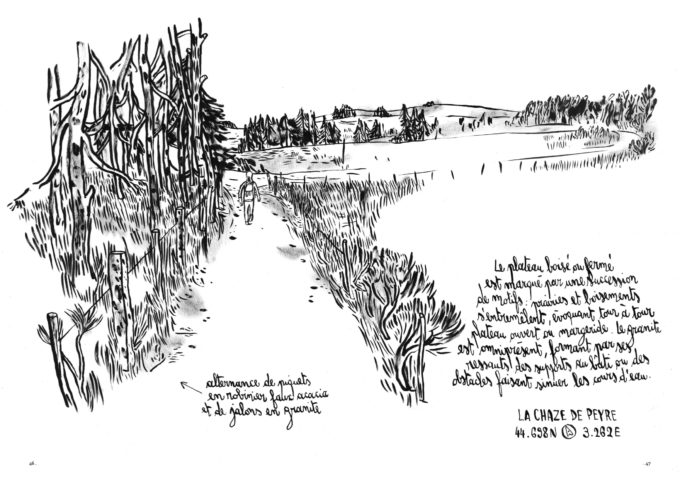 Le plateau boisé ou fermé
est marqué par une succession
de motifs : prairies et boisements
s'entremêlent, évoquant tour à tour
plateau ouvert ou margeride. le granite
est omniprésent, formant par ses
ressauts des supports au bâti ou des
obstacles faisant sinuer les cours d'eau.
alternance de piquets
en robinier faux acacia
et de jalons en granite
LA CHAZE DE PEYRE
44.698N 3.262E
46.
.47